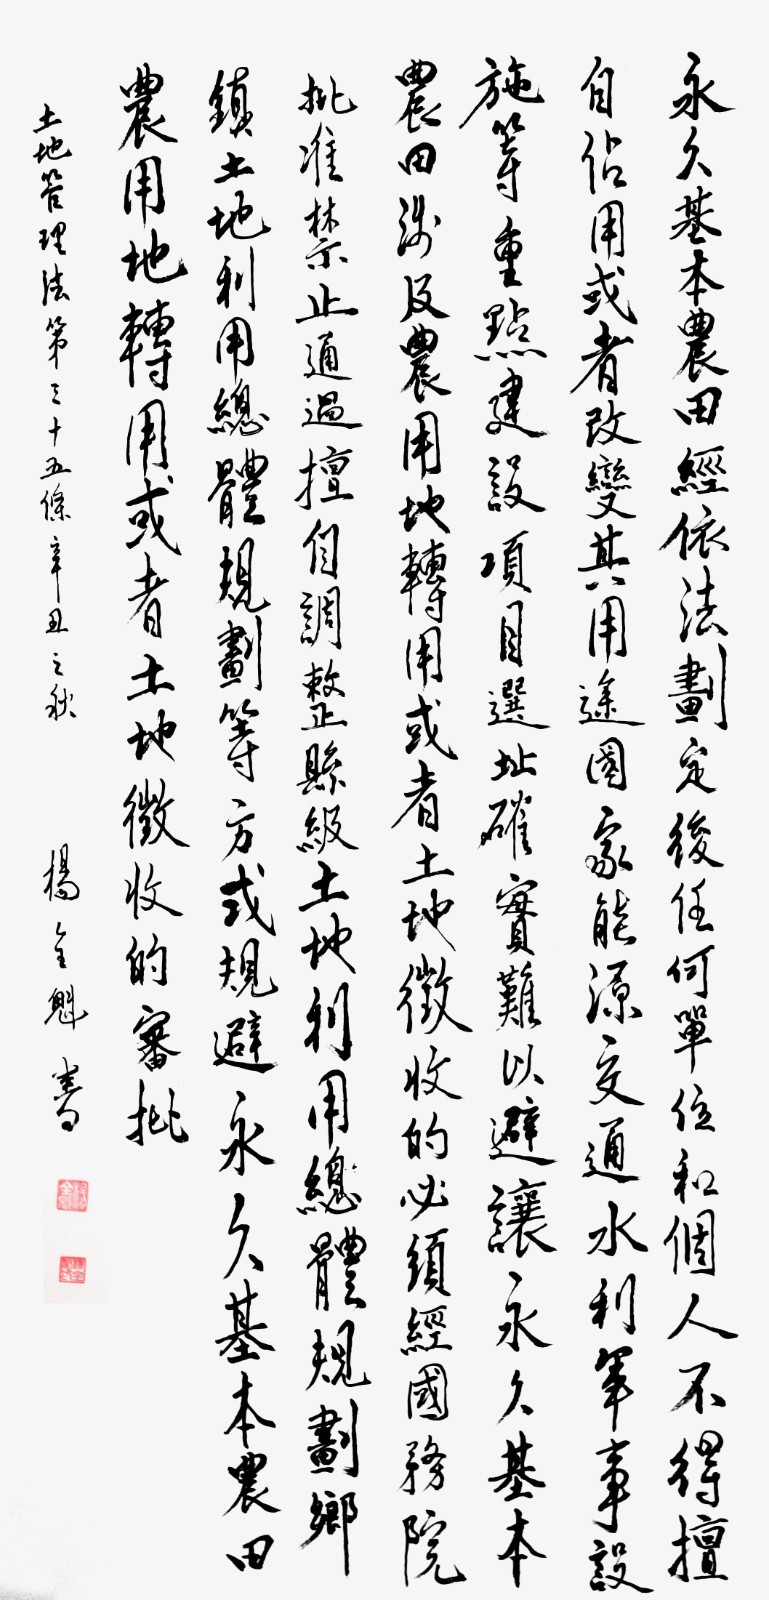 永久基本農田經依法劃定後任何單位和個人不得擅
自佔用或者改變其用途國家能源交通水利軍事設
施等重點建設項目選址確實難以避讓永久基本
農田涉及農用地轉用或者土地徵收的必須經國務院
批准禁止通過擅自調整縣級土地利用總體規劃鄉
鎮土地利用總體規劃等方式規避永久基本農田
農用地轉用或者土地徵收的審批
土地管理法第三十五條辛丑之秋 楊金魁書